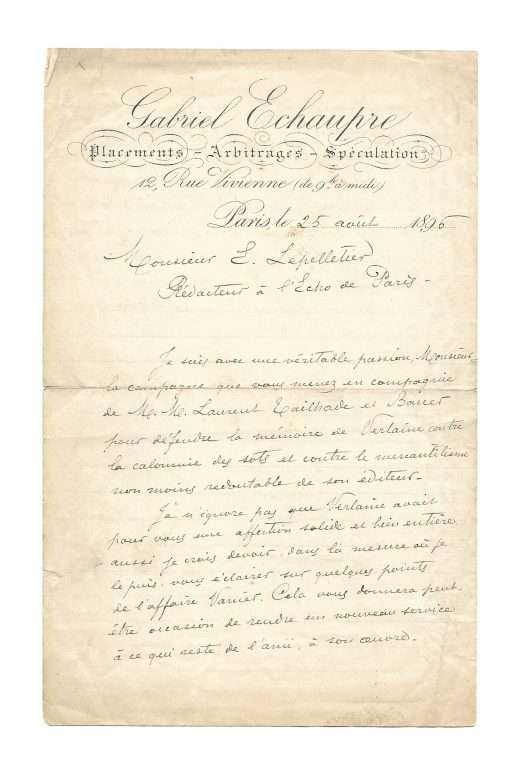 Gabriel Echaupre
Placements - Arbitrages - Spéculation
12, Rue Vivienne (de 9h. à midi)
Paris, le 25 août 1896
Monsieur E. Lepelletier
Rédacteur à l'Echo de Paris -
Je suis avec une véritable passion, Monsieur,
la campagne que vous menez en compagnie
de M. M. Laurent Tailhade et
pour défendre la mémoire de Verlaine contre
la calomnie des sots et contre le mercantilisme
non moins redoutable de son éditeur.
Je n'ignore pas que Verlaine avait
pour vous une affection solide et bien entière
aussi je crois devoir, dans la mesure où je
le puis, vous éclairer sur quelques points
de l'affaire Vanier. Cela vous donnera peut-
être occasion de rendre un nouveau service
à ce qui reste de l'ami, à son œuvre.